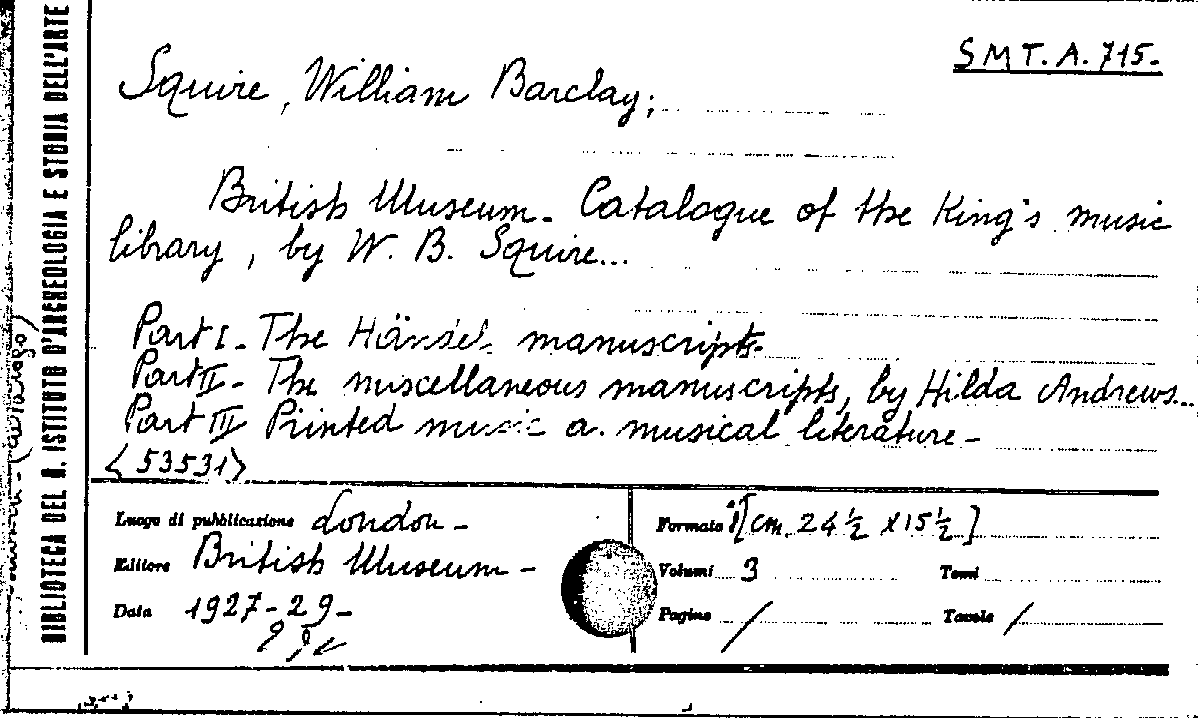 SMT. A. 715.
Squire, William Barclay;
British Museum - Catalogue of the King's music
library, by W. B. Squire...
Part I - The Händel manuscripts -
Part II - The miscellaneous manuscripts, by Hilda Andrews...
Part III Printed music a. musical literature -
<53531>
Luogo di pubblicazione London -
Editore British Museum -
Data 1927-29-
Formato [cm. 24 ½ x 15 ½]
Volumi 3 Tomi
Pagine / Tavole /
BIBLIOTECA DEL R. ISTITUTO D'ARCHEOLOGIA E STORIA DELL'ARTE